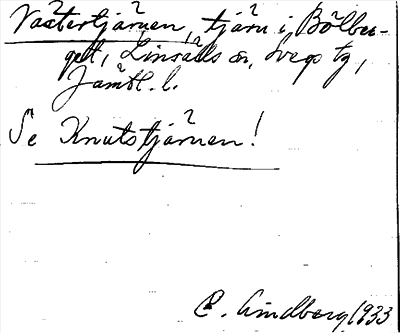 Västertjärnen, tjärn i Bölbu-
gett, Linsälls sn, Svegs tg,
Jämtl. l.
Se Knutstjärnen!
C. Lindberg 1933